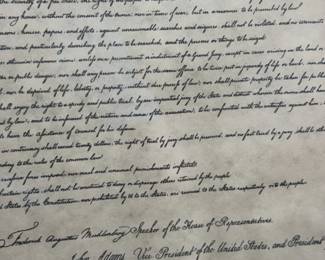 of a free State, the right of the people to
any house, without the consent of the owner, nor in time of war, but in a manner to be prescribed by law
houses, papers, and effects, against unreasonable searches and seizures, shall not be violated, and no warrants
and particularly describing the place to be searched, and the persons or things to be seized.
otherwise infamous crime, unless on a presentment or indictment of a Grand Jury, except in cases arising in the land or
or public danger; nor shall any person be subject for the same offence to be twice put in jeopardy of life or limb; nor shall
nor be deprived of life, liberty, or property, without due process of law; nor shall private property be taken for public
shall enjoy the right to a speedy and public trial, by an impartial jury of the State and district wherein the crime shall have
by law, and to be informed of the nature and cause of the accusation; to be confronted with the witnesses against him;
to have the assistance of Counsel for his defence
in controversy shall exceed twenty dollars, the right of trial by jury shall be preserved, and no fact tried by a jury shall be
to the rules of the common law
fines imposed, nor cruel and unusual punishments inflicted
certain rights, shall not be construed to deny or disparage others retained by the people
States by the Constitution, nor prohibited by it to the States, are reserved to the States respectively, or to the people
Frederick Augustus Muhlenberg Speaker of the House of Representatives.
John Adams, Vice President of the United States, and President